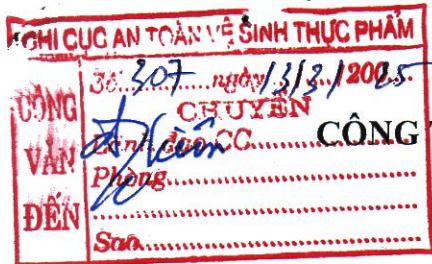 CHI CỤC AN TOÀN VỆ SINH THỰC PHẨM
CÔNG VĂN ĐẾN
Số 307 ngày 13/3/2025
CHUYỂN
Lãnh đạo CC
CÔNG T
Phòng
Sao